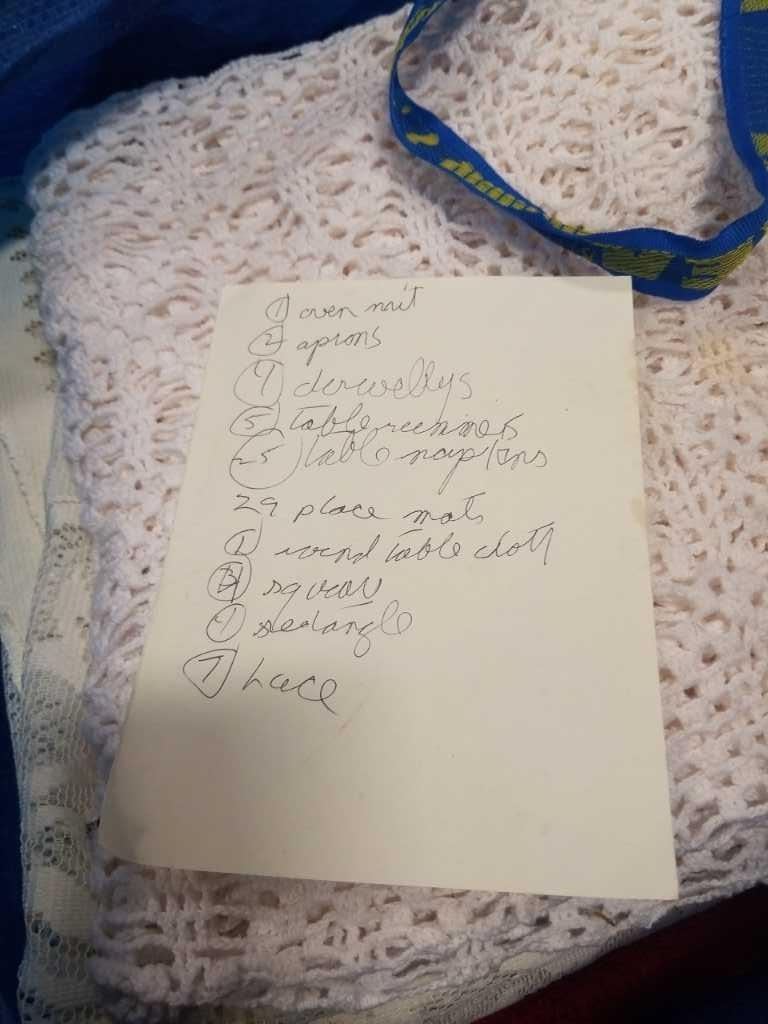 1 oven mit
2 aprons
7 derwellys
5 table runners
25 table napkins
29 place mats
1 round table cloth
square
7 rectangle
7 Lace